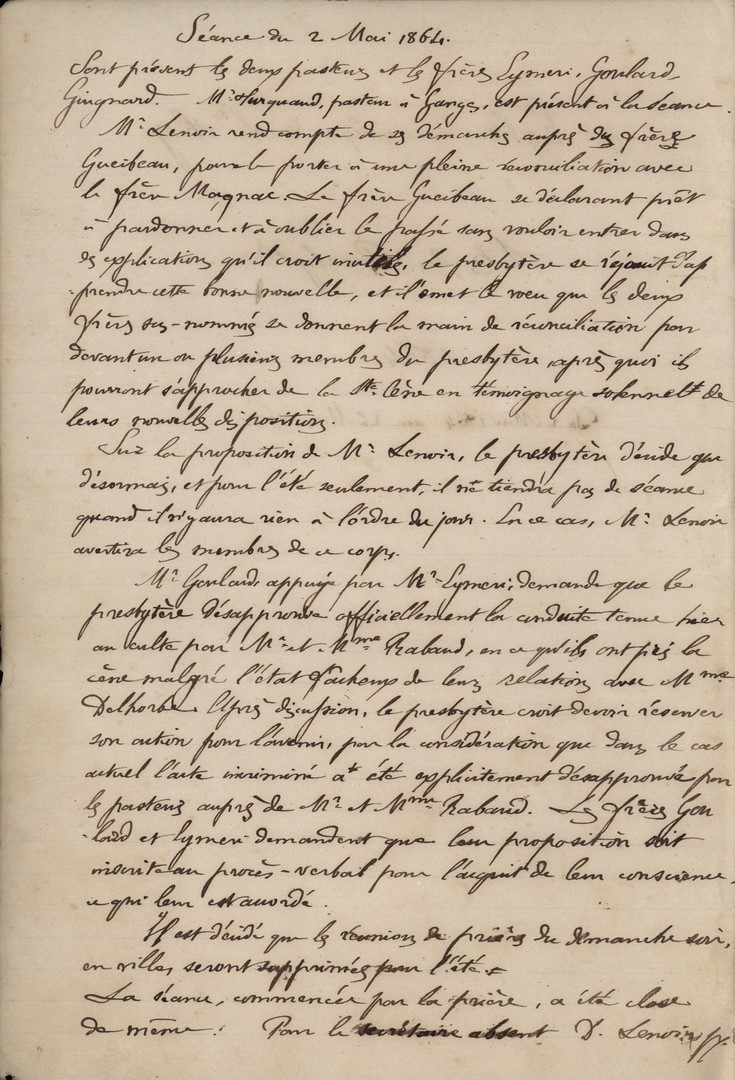 Séance du 2 Mai 1864.
Sont présent les deux pasteurs et les frères Eymeri, Goulard
Guignard. Mr. pasteur à Ganges, est présent à la séance.
Mr. Lenoir rend compte de ses démarches auprès du frère
Gueibeau, pour le porter à une pleine réconciliation avec
le frère Magnac. Le frère Gueibeau se déclarant prêt
à pardonner et à oublier le passé sans vouloir entrer dans
des explications qu'il croit inutiles, le presbytère se réjouit d'ap
-prendre cette bonne nouvelle, et il émet le vœu que les deux
frères sus-nommés se donnent la main de réconciliation par
devant un ou plusieurs membres du presbytère, après quoi ils
pourront s'approcher de la Ste. Cène en témoignage solennel de
leurs nouvelles dispositions.
Sur la proposition de Mr. Lenoir, le presbytère décide que
désormais, et pour l'été seulement, il ne tiendra pas de séance
quand il n'y aura rien à l'ordre du jour. En ce cas, Mr. Lenoir
avertira les membres de ce corps.
Mr. Goulard, appuyé par Mr. Eymeri, demande que le
presbytère désapprouve officiellement la conduite tenue hier
au culte par Mr. et Mme Rabaud, en ce qu'ils ont pris la
cène malgré l'état de leurs relations avec Mme
Delhorbe. Après discussion, le presbytère croit devoir réserver
son action pour l'avenir, par la considération que dans le cas
actuel l'acte incriminé a été explicitement désapprouvé par
les pasteurs auprès de Mr. et Mme Rabaud. Les frères Gou
-lard et Eymeri demandent que leur proposition soit
inscrite au procès-verbal pour l'acquit de leur conscience,
ce qui leur est accordé.
Il est décidé que les réunions de prières du dimanche soir,
en ville, seront supprimées pour l'été.
La séance, commencée par la prière, a été close
de même. Pour le secrétaire absent D. Lenoir, pr.